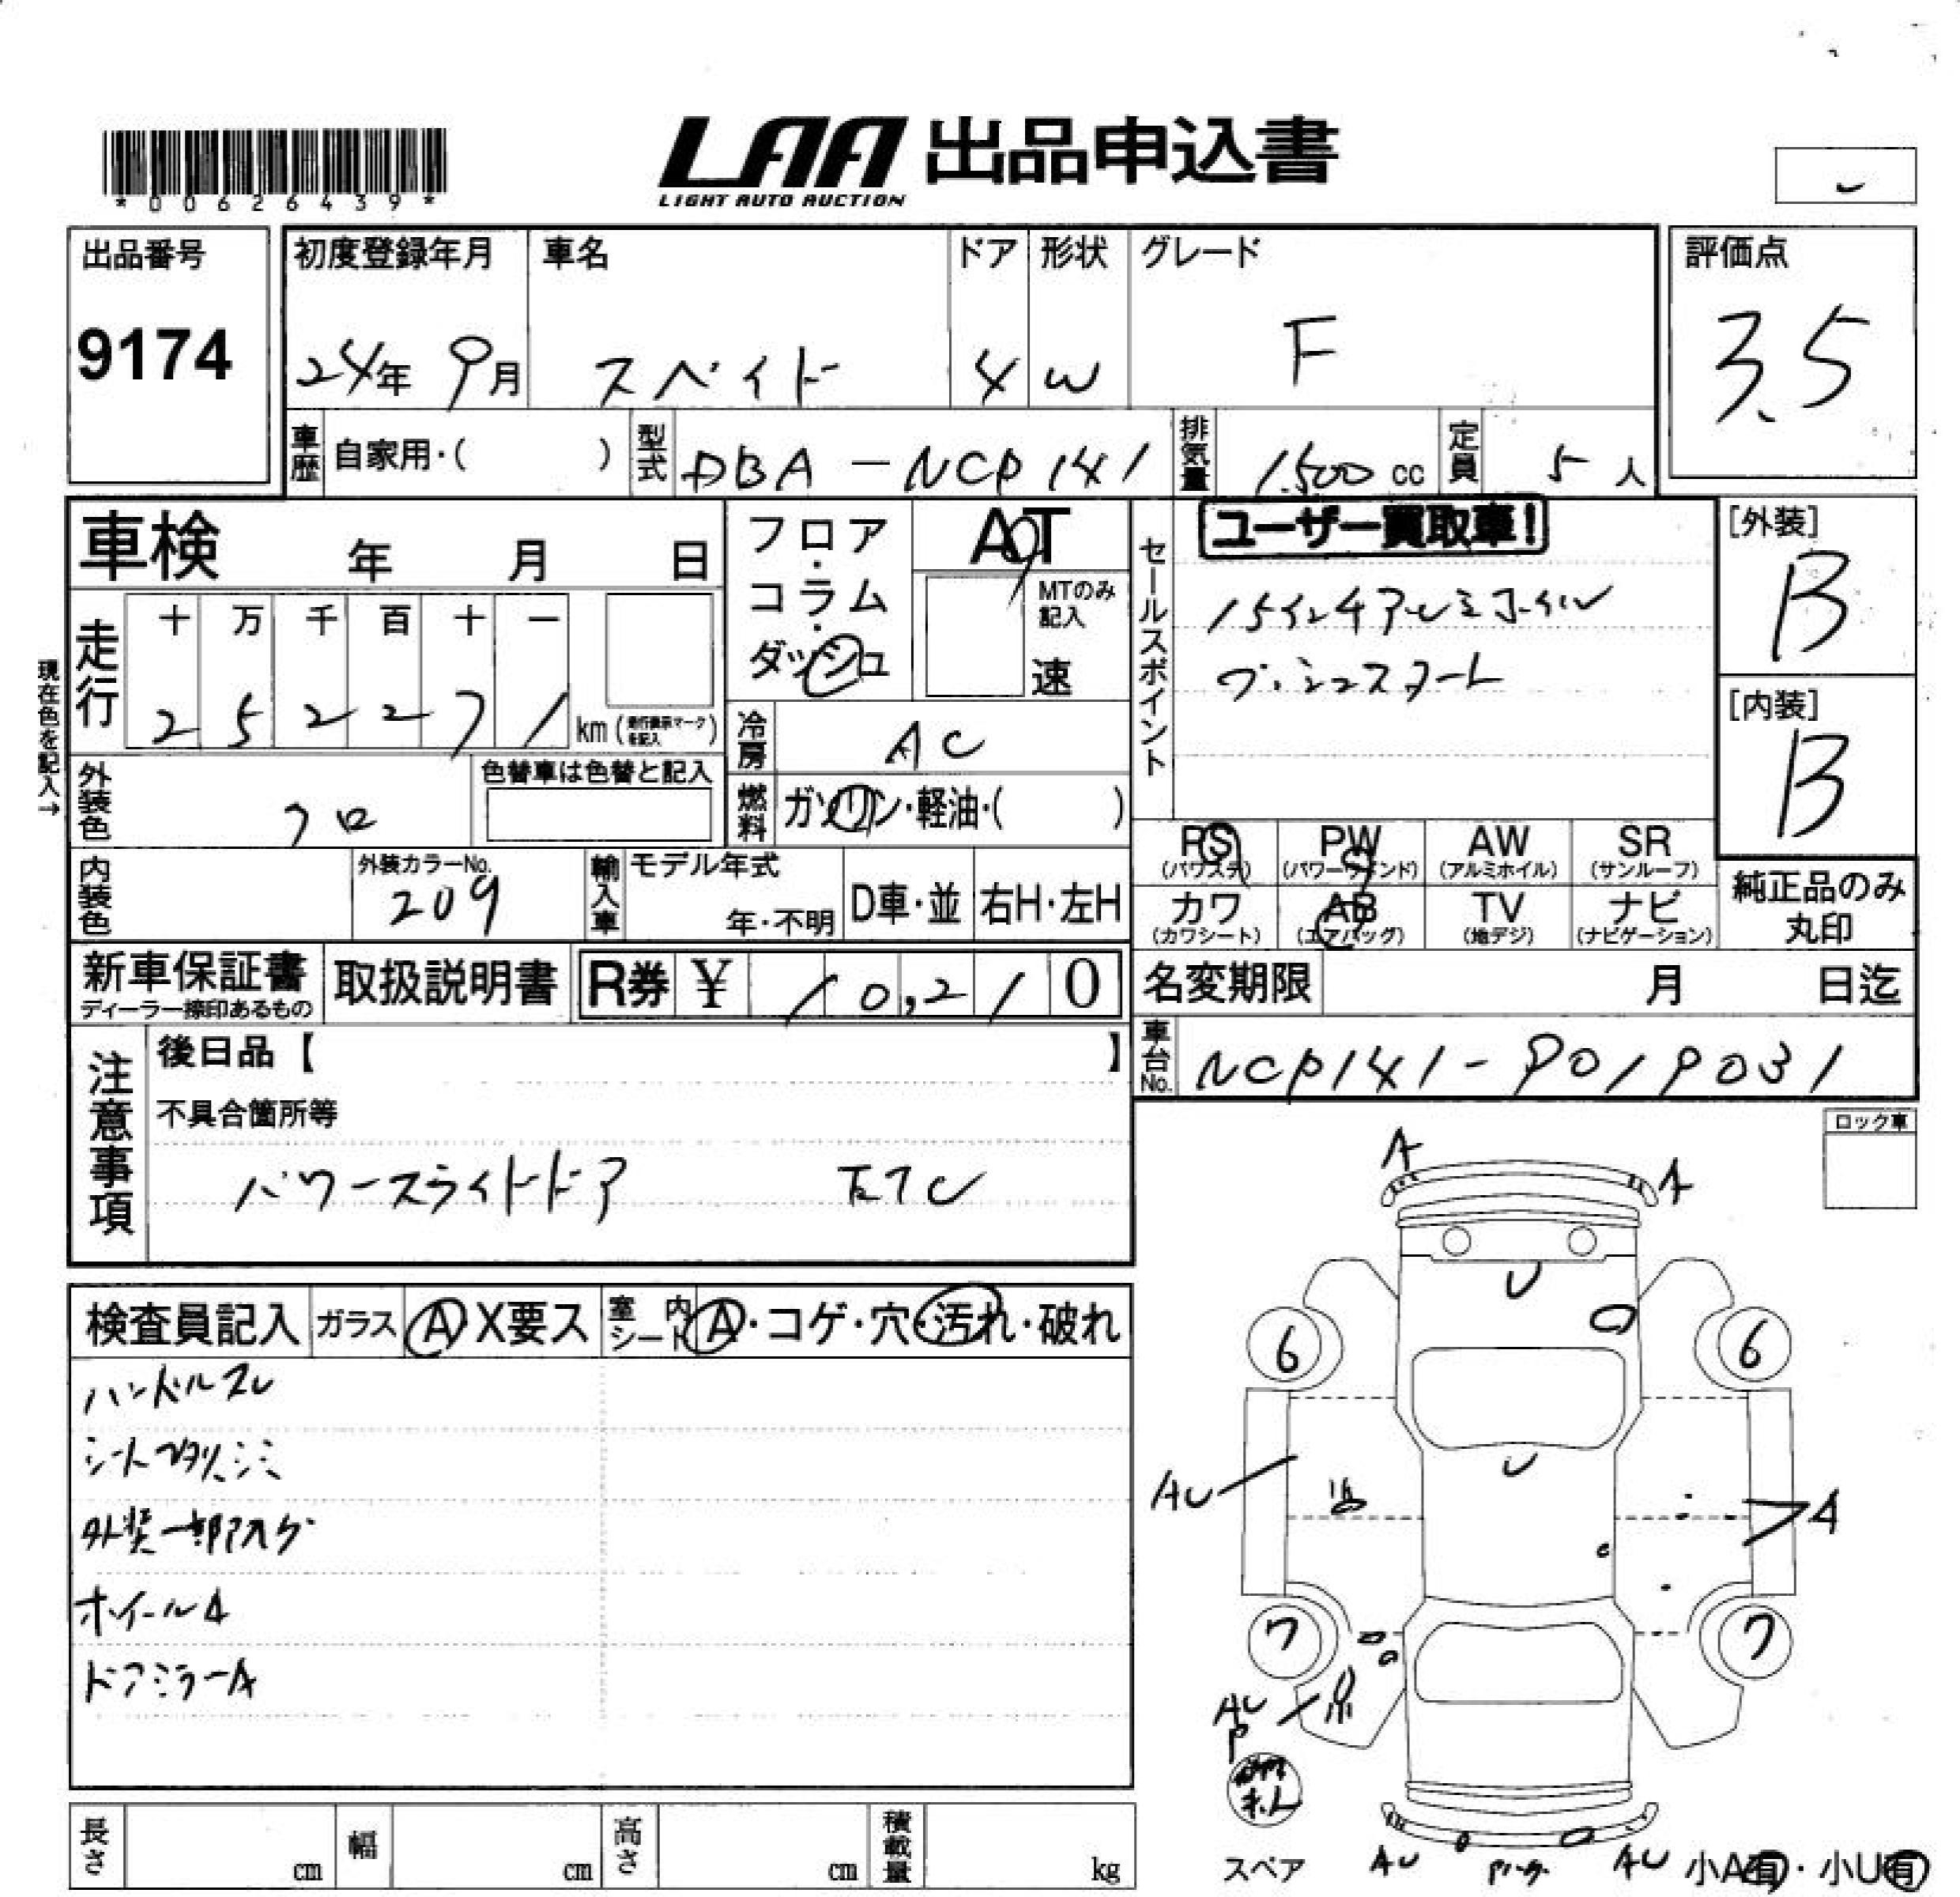 LAA 出品申込書
LIGHT AUTO AUCTION
*00626439*
出品番号
9174
初度登録年月
24年 9月
車名
スペイド
ドア
4
形状
W
グレード
F
評価点
3.5
車歴 自家用・( )
型式 DBA-NCP141
排気量 1500 cc
定員 5 人
車検 年 月 日
フロア・コラム・ダッシュ
AT
MTのみ記入
速
セールスポイント
ユーザー買取車!
15インチアルミホイル
プッシュスタート
[外装]
B
[内装]
B
現在色を記入→
走行
十 万 千 百 十 一
2 5 2 2 7 1 km (走行表示マークを記入)
冷房 AC
外装色 クロ
色替車は色替と記入
燃料 ガソリン・軽油・( )
内装色
外装カラーNo.
209
輸入車 モデル年式
年・不明
D車・並
右H・左H
PS (パワステ)
PW (パワーウインド)
AW (アルミホイル)
SR (サンルーフ)
カワ (カワシート)
AB (エアバッグ)
TV (地デジ)
ナビ (ナビゲーション)
純正品のみ丸印
新車保証書
ディーラー捺印あるもの
取扱説明書
R券 ¥ 10,210
名変期限 月 日迄
車台No. NCP141-9019031
注意事項
後日品【 】
不具合箇所等
パワースライドドア ETC
ロック車
検査員記入
ガラス A X要ス
室内シート A・コゲ・穴・汚れ・破れ
ハンドルスレ
シートヘタリ、シミ
外装一部アスグ
ホイールA
ドアミラーA
A
A
U
6
6
U
AU
A
7
7
AU
P
スペア
AU
AU
小A有・小U有
長さ cm
幅 cm
高さ cm
積載量 kg